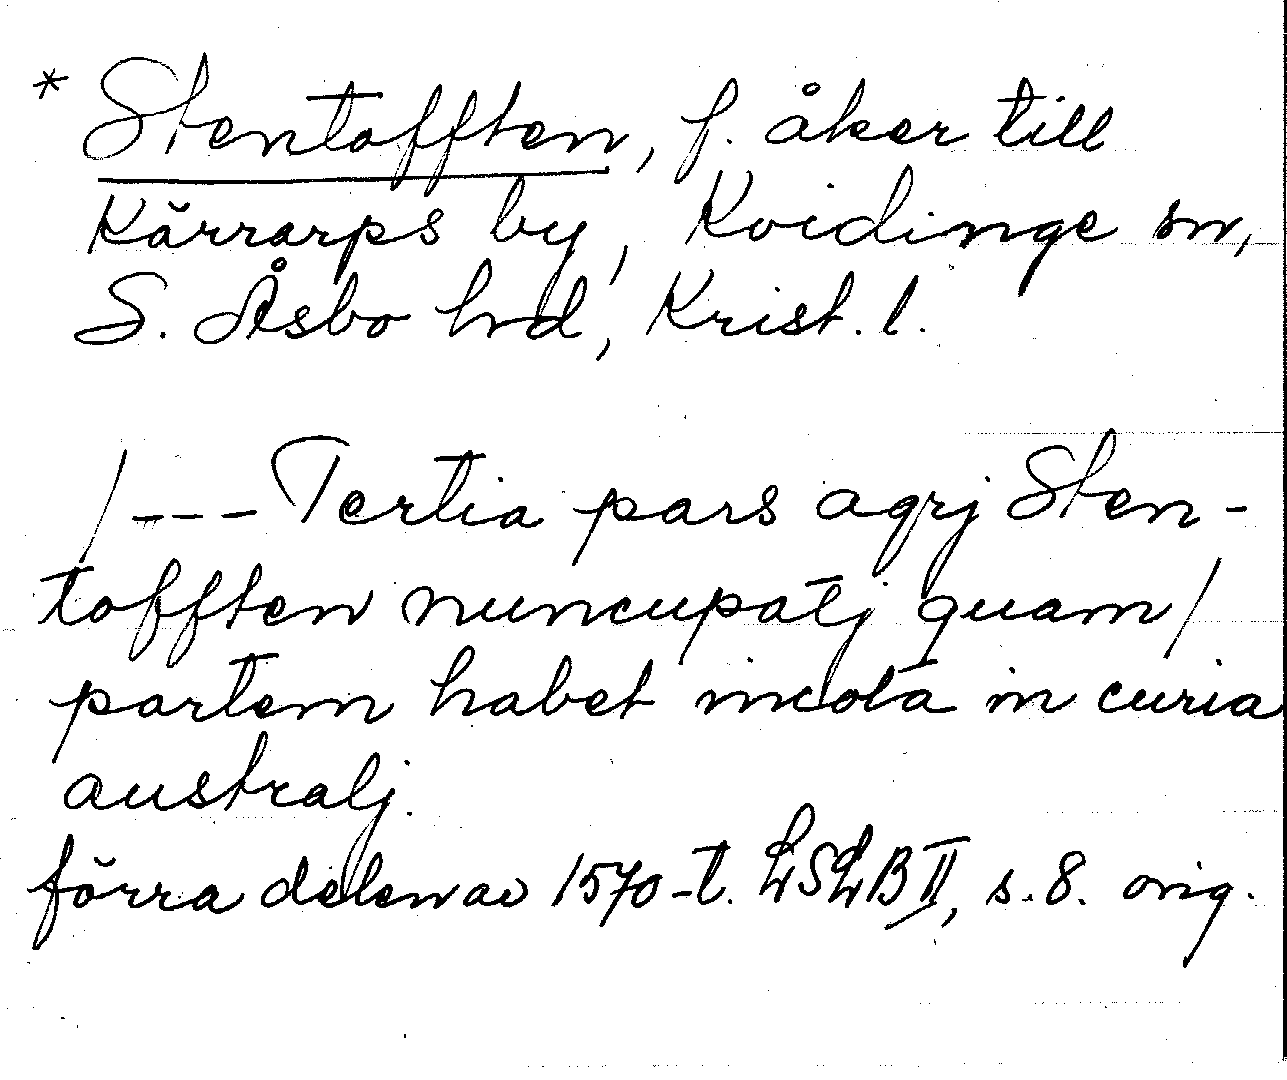 * Stentofften, f. åker till
Kärrarps by, Kvidinge sn,
S. Åsbo hrd, Krist. l.
/--- Tertia pars agrj Sten-
tofften nuncupatj quam/
partem habet incola in curia
australj.
förra delen av 1570-t. LSLB II, s. 8. orig.